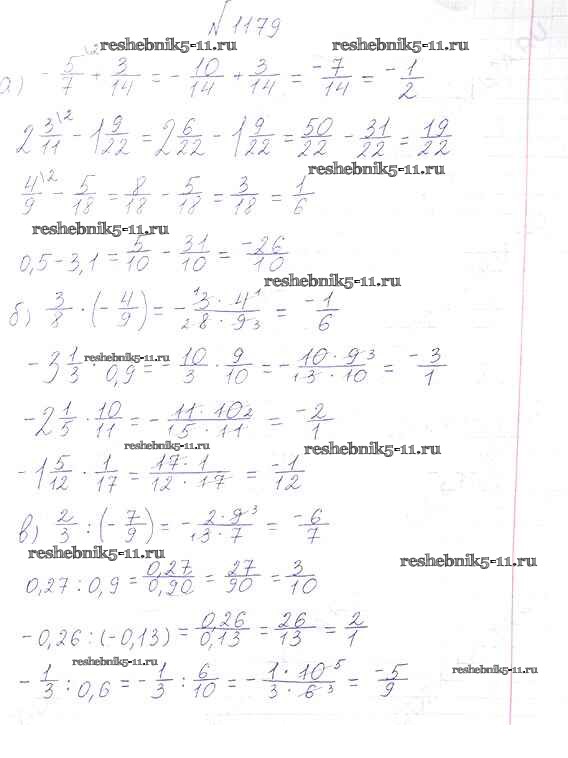 № 1179
reshebnik5-11.ru
а) - 5/7 \2 + 3/14 = - 10/14 + 3/14 = -7/14 = -1/2
2 3/11 \2 - 1 9/22 = 2 6/22 - 1 9/22 = 50/22 - 31/22 = 19/22
reshebnik5-11.ru
4/9 \2 - 5/18 = 8/18 - 5/18 = 3/18 = 1/6
reshebnik5-11.ru
0,5 - 3,1 = 5/10 - 31/10 = -26/10
reshebnik5-11.ru
б) 3/8 · (- 4/9) = - 1 3 · 4 1/2 8 · 9 3 = -1/6
reshebnik5-11.ru
-3 1/3 · 0,9 = - 10/3 · 9/10 = - 10 · 9 3/1 3 · 10 = -3/1
-2 1/5 · 10/11 = - 11 · 10 2/1 5 · 11 = -2/1
reshebnik5-11.ru reshebnik5-11.ru
-1 5/12 · 1/17 = 17 · 1/12 · 17 = -1/12
в) 2/3 : (- 7/9) = - 2 · 9 3/1 3 · 7 = -6/7
reshebnik5-11.ru reshebnik5-11.ru
0,27 : 0,9 = 0,27/0,90 = 27/90 = 3/10
-0,26 : (-0,13) = 0,26/0,13 = 26/13 = 2/1
reshebnik5-11.ru reshebnik5-11.ru
- 1/3 : 0,6 = - 1/3 : 6/10 = - 1 · 10 5/3 · 6 3 = -5/9